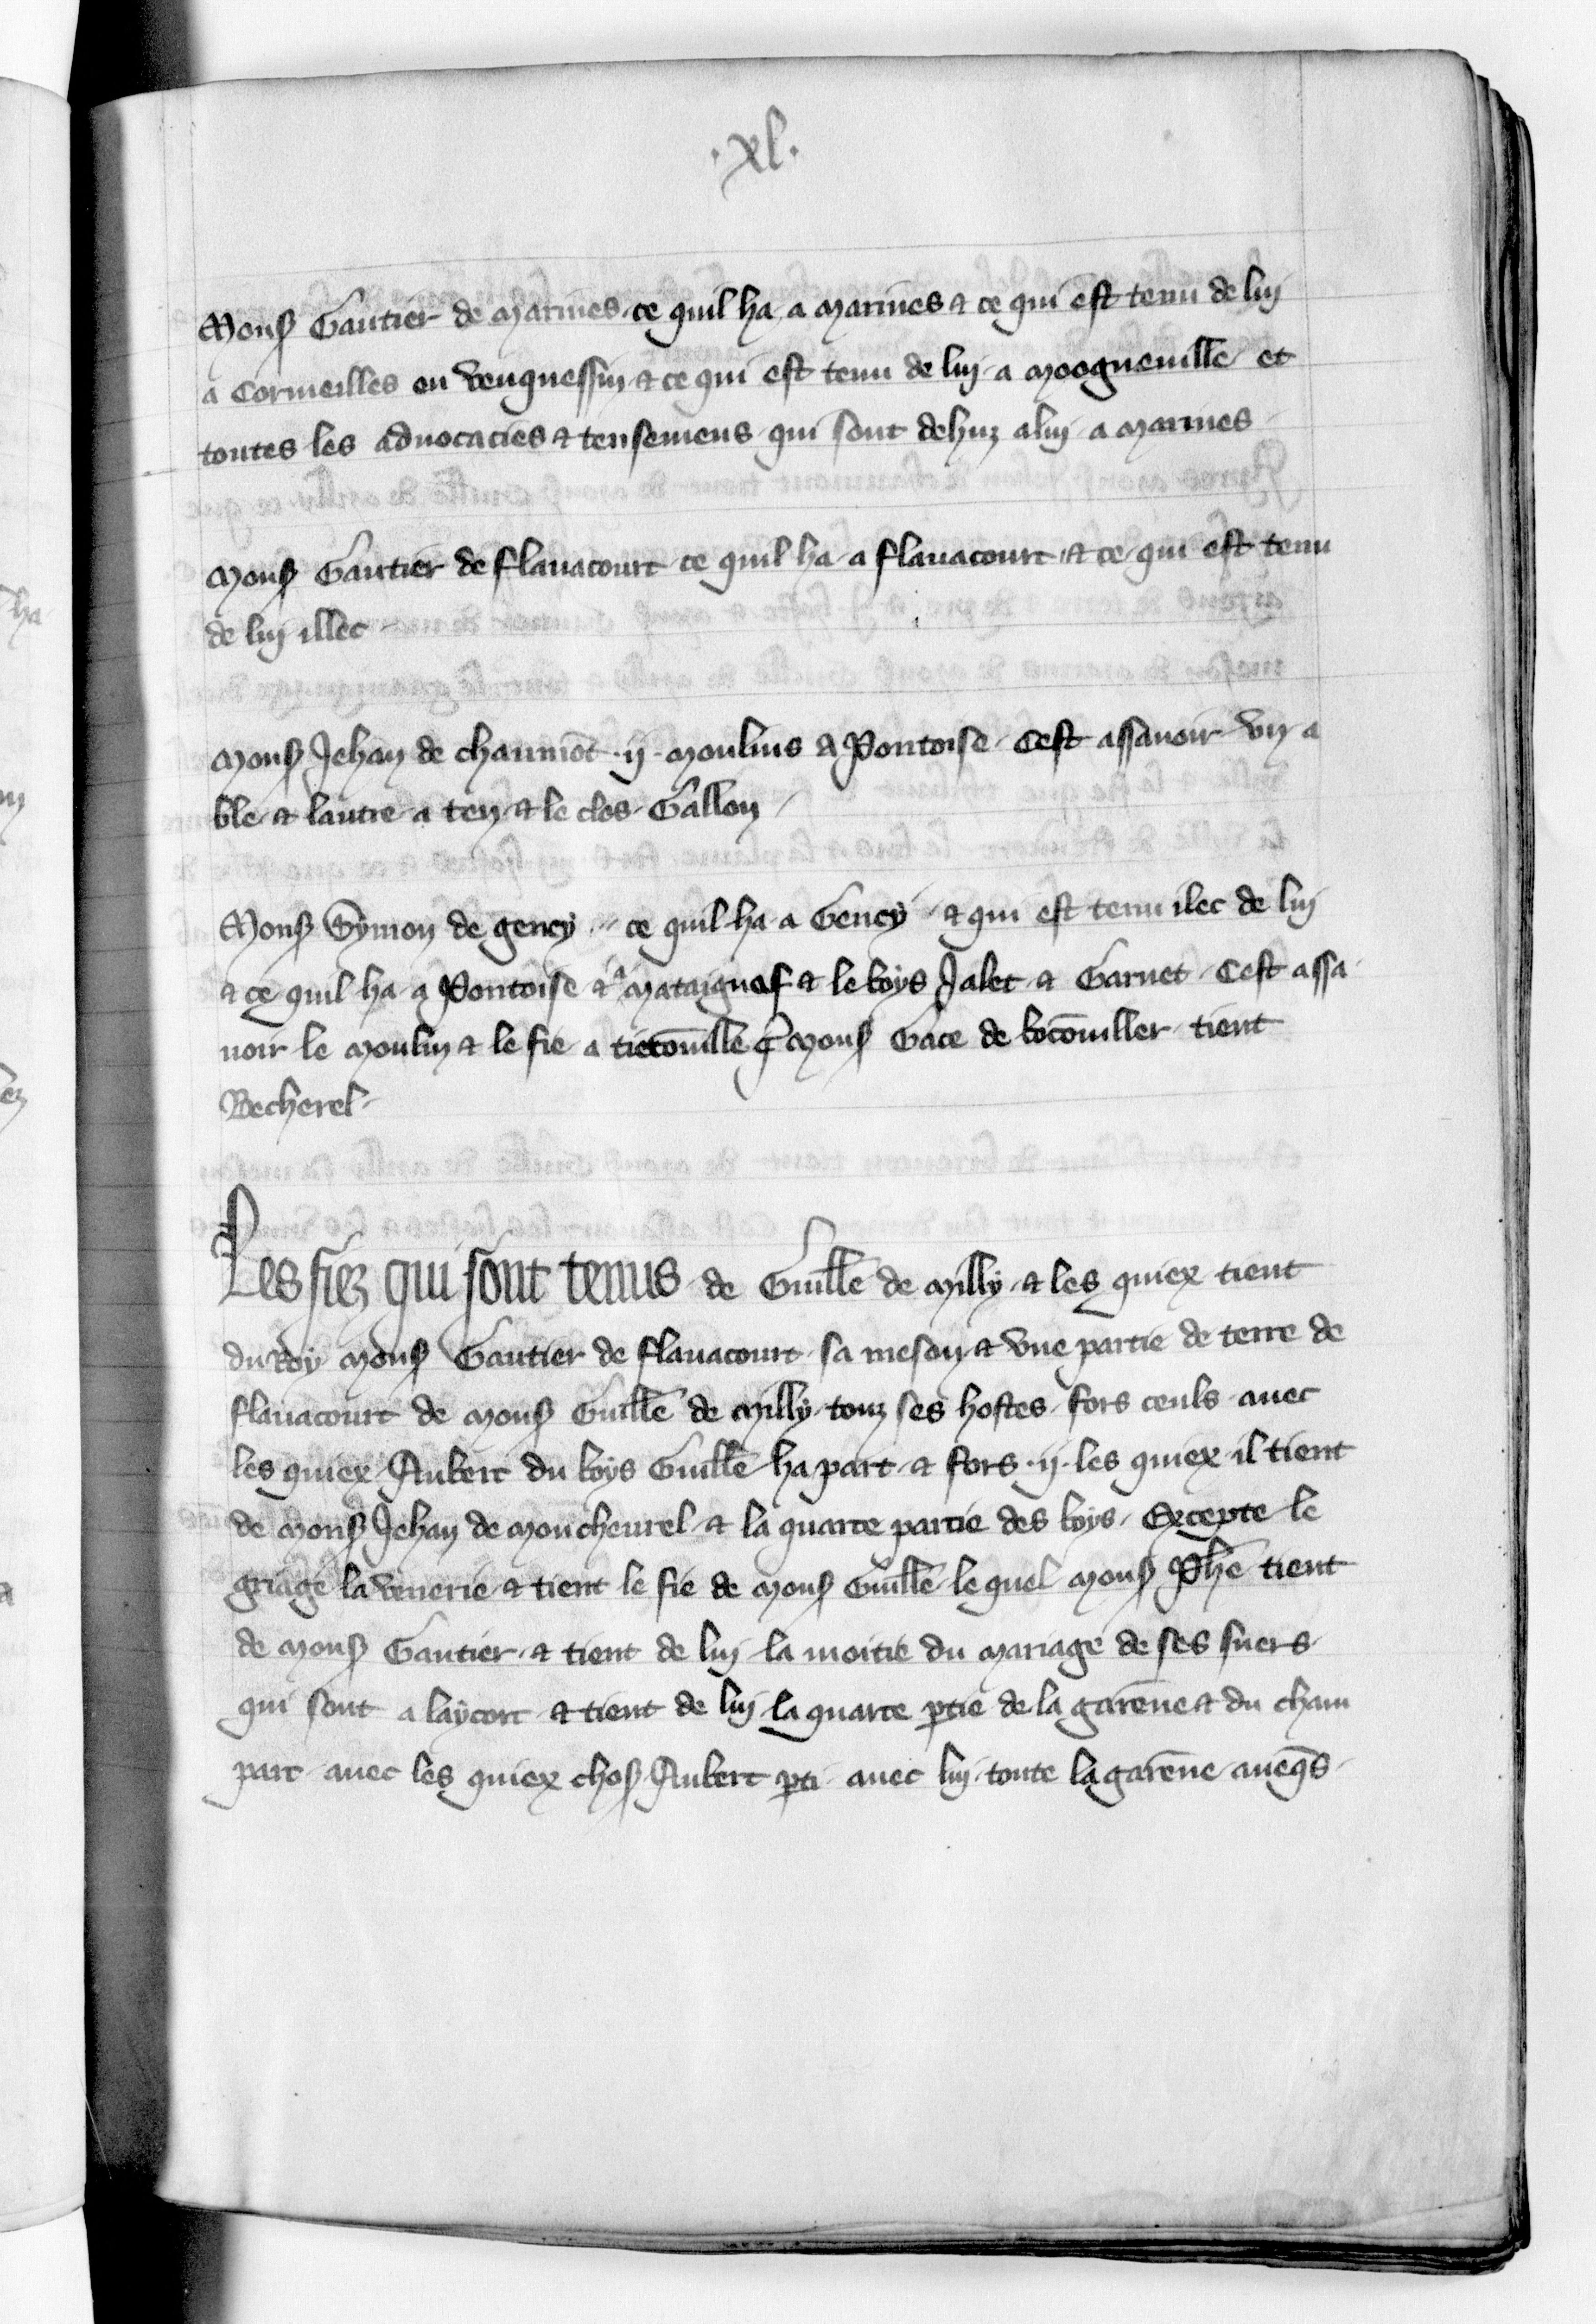 .xl.
Mons Gautier de Marines ce quil ha a Marines & ce qui est tenu de luy
a Cormeilles ou veuquessin & ce qui est tenu de luy a Moogneuille et
toutes les aduocacies & tensemens qui sont dehuz a luy a Marines
Mons Gautier de flauacourt ce quil ha a flauacourt & ce qui est tenu
de luy illec
Mons Jehan de chaumōt .ij. Moulins a Pontoise Cest assauoir vn a
ble & lautre a ten & le clos Gallon
Mons Symon de gency ce quil ha a Gency & qui est tenu ilec de luy
& ce quil ha a Pontoise & a Mataignes & le boys Jalet & Garnet Cest assa
uoir le Moulin & le fie a tietōuille q̄ Mons Gace de bocōuiller tient
Becherel
Les fiez qui sont tenus de Guille de Milly & les quiex tient
du Roy Mons Gautier de flauacourt sa meson & vne partie de terre de
flauacourt de Mons Guille de Milly touz ses hostes fors ceuls auec
les quiex Aubert du boys Guille ha part & fors .ij. les quiex il tient
de Mons Jehan de Moncheurel & la quarte partie des boys Excepte le
griage la venerie & tient le fie de Mons Guille le quel Mons Phe tient
de Mons Gautier & tient de luy la moitie du Mariage de ses suers
qui sont a laycort & tient de luy la quarte ptie de la garēne & du cham
part auec les quiex chos Aubert pti auec luy toute la garēne aueqs